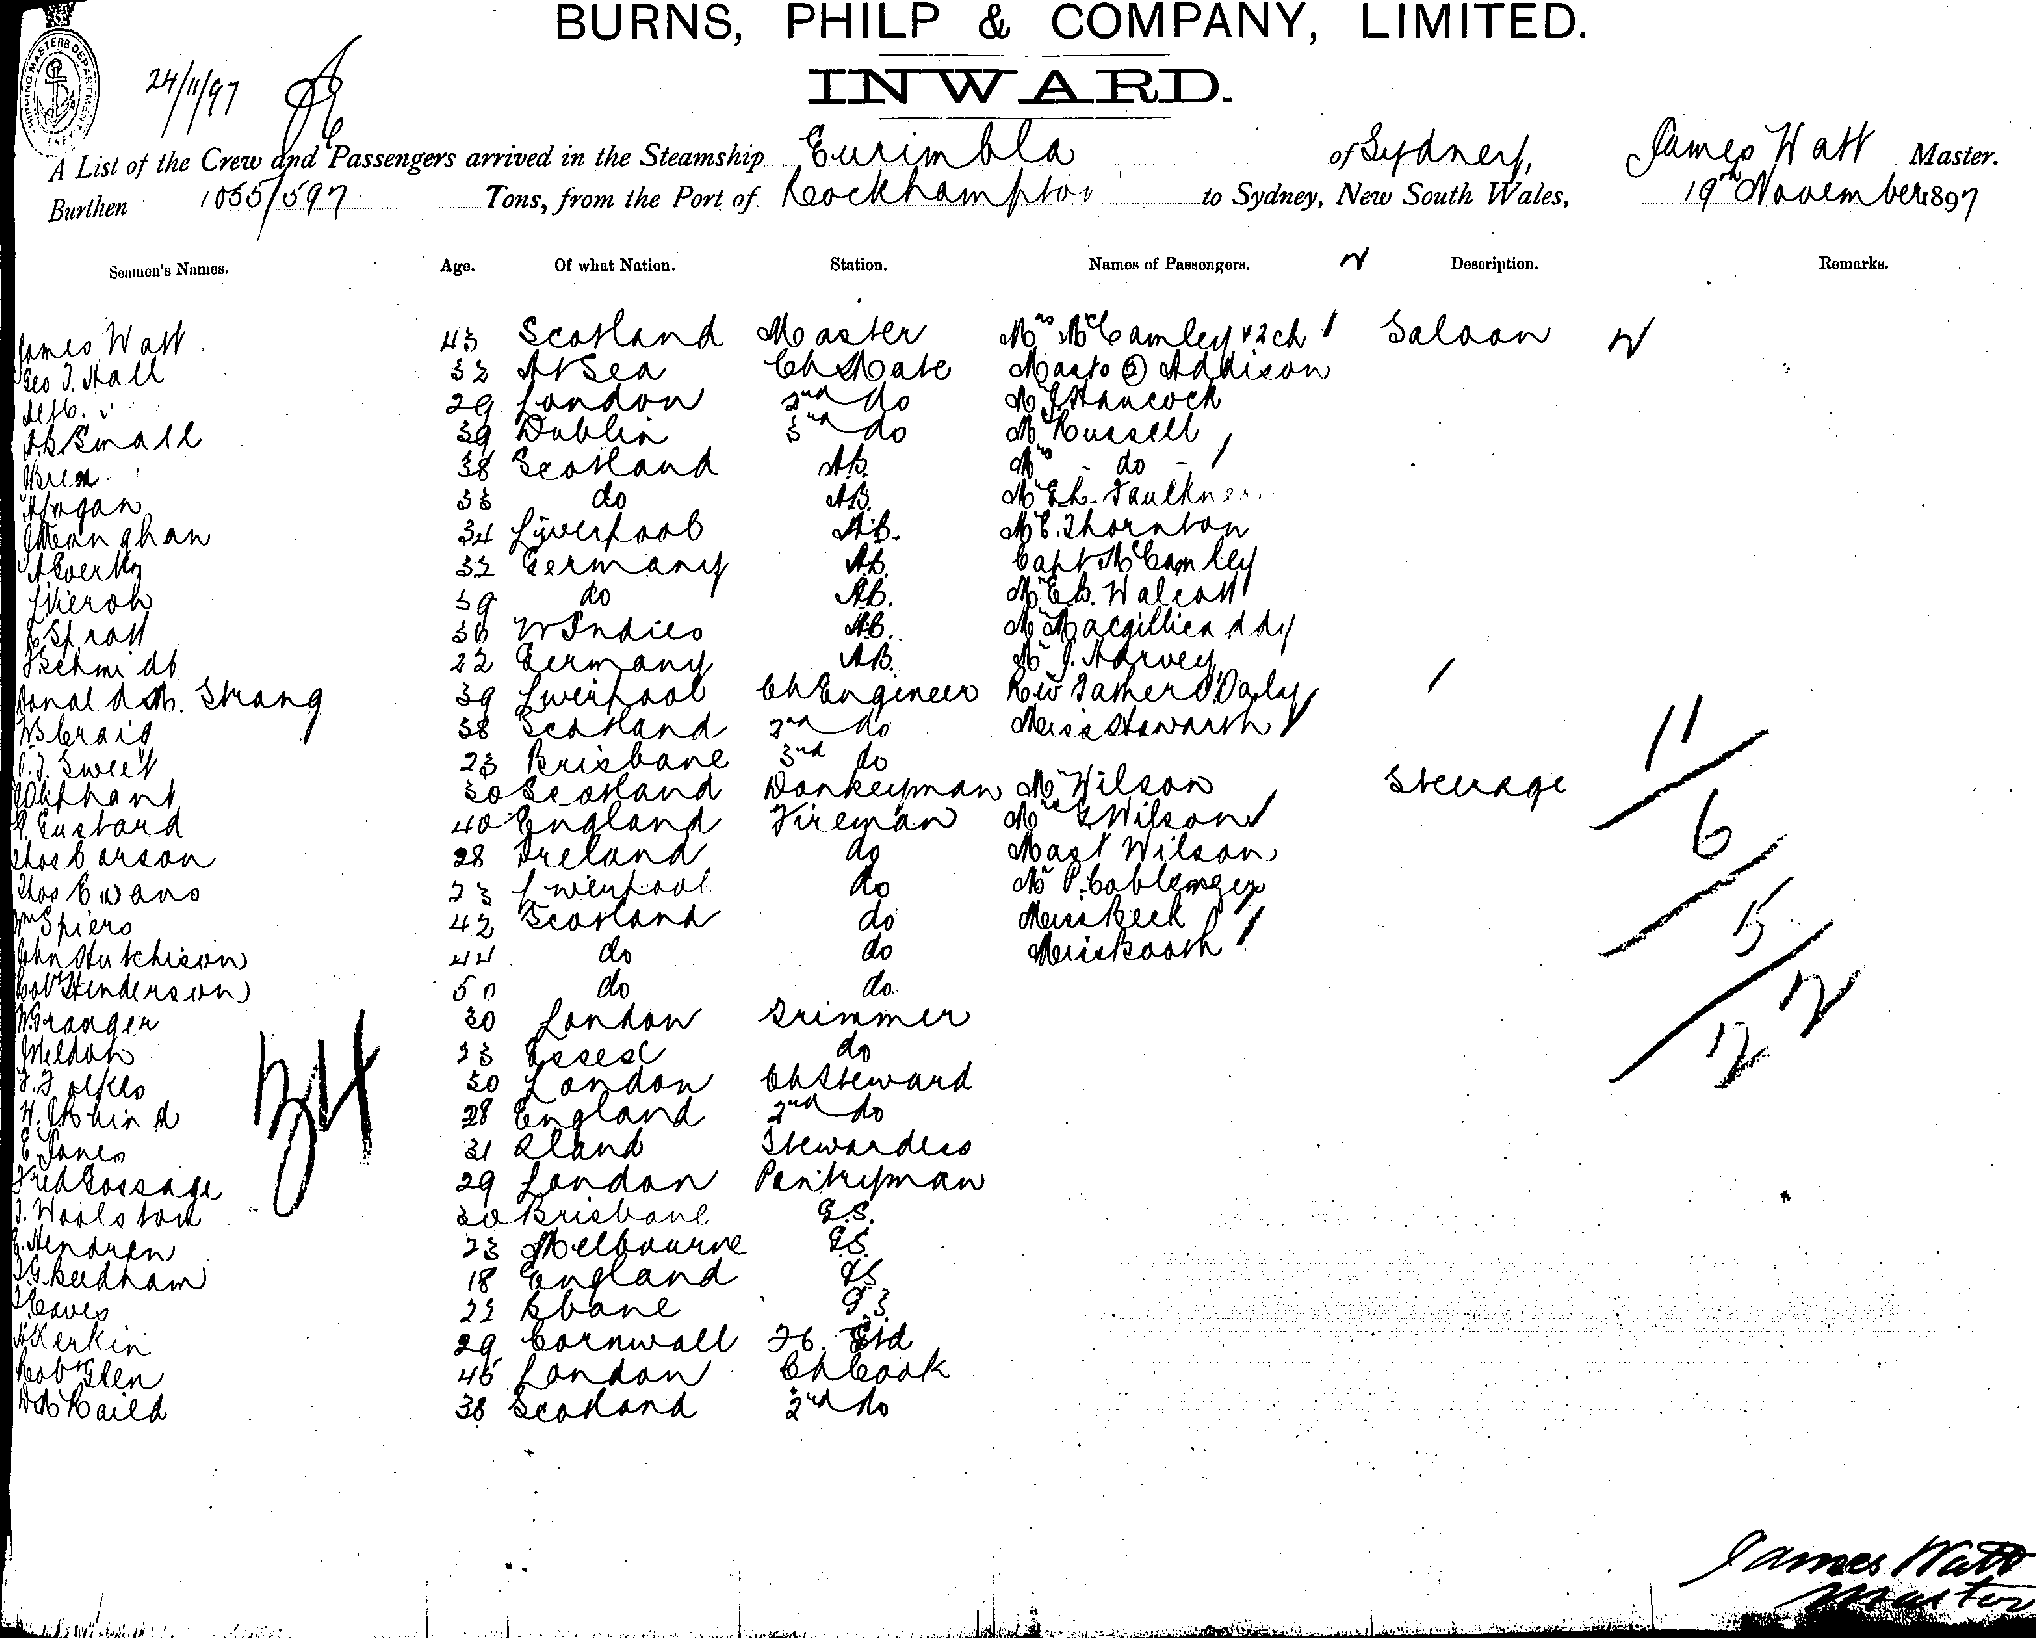 BURNS, PHILP & COMPANY, LIMITED.
INWARD.
24/11/97
A List of the Crew and Passengers arrived in the Steamship Eurimbla of Sydney, James Watt Master.
Burthen 1055/597 Tons, from the Port of Rockhampton to Sydney, New South Wales, 19th November 1897
Seamen's Names. Age. Of what Nation. Station. Names of Passengers. Description. Remarks.
James Watt 43 Scotland Master Mrs McCamley & 2 ch Saloon
Geo J. Hall 32 At Sea Ch Mate Masts (2) Addison
29 London 2nd do Mr J Hancock
Small 39 Dublin 3rd do Mr Russell
38 Scotland AB. Mrs - do -
Hogan 33 do AB. Mr Faulkner
Monaghan 34 Liverpool AB. Mr E. Thornton
32 Germany AB. Capt McCamley
39 do AB. Mr E.B. Walcott
Sprott 36 W Indies AB. Mr Macgillicaddy
Schmidt 22 Germany AB. Mr J. Harvey
Donald M. Strang 39 Liverpool Ch Engineer Rev Father O'Daly
Craig 38 Scotland 2nd do Miss
Sweet 23 Brisbane 3rd do
Oliphant 30 Scotland Donkeyman Mr Wilson Steerage
Eustard 40 England Fireman Mrs Wilson
Thos Carson 28 Ireland do Mast Wilson
Thos Evans 23 Liverpool do Mr P.
Wm Spiers 42 Scotland do Miss Beck
John Hutchison 44 do do Miss Booth
Robt Henderson 50 do do
Granger 30 London Trimmer
Meldon 23 Essex do
30 London Ch Steward
28 England 2nd do
E Jones 31 Stewardess
Fred Gossage 29 London Pantryman
J. Woolston 30 Brisbane G.S.
Hendren 23 Melbourne G.S.
Needham 18 England G.S.
Eaves 22 Bbane G.S.
Kerkin 29 Cornwall Std
Robt Glen 45 London Ch Cook
38 Scotland 2nd do
34
11
6
5
22
James Watt
Master